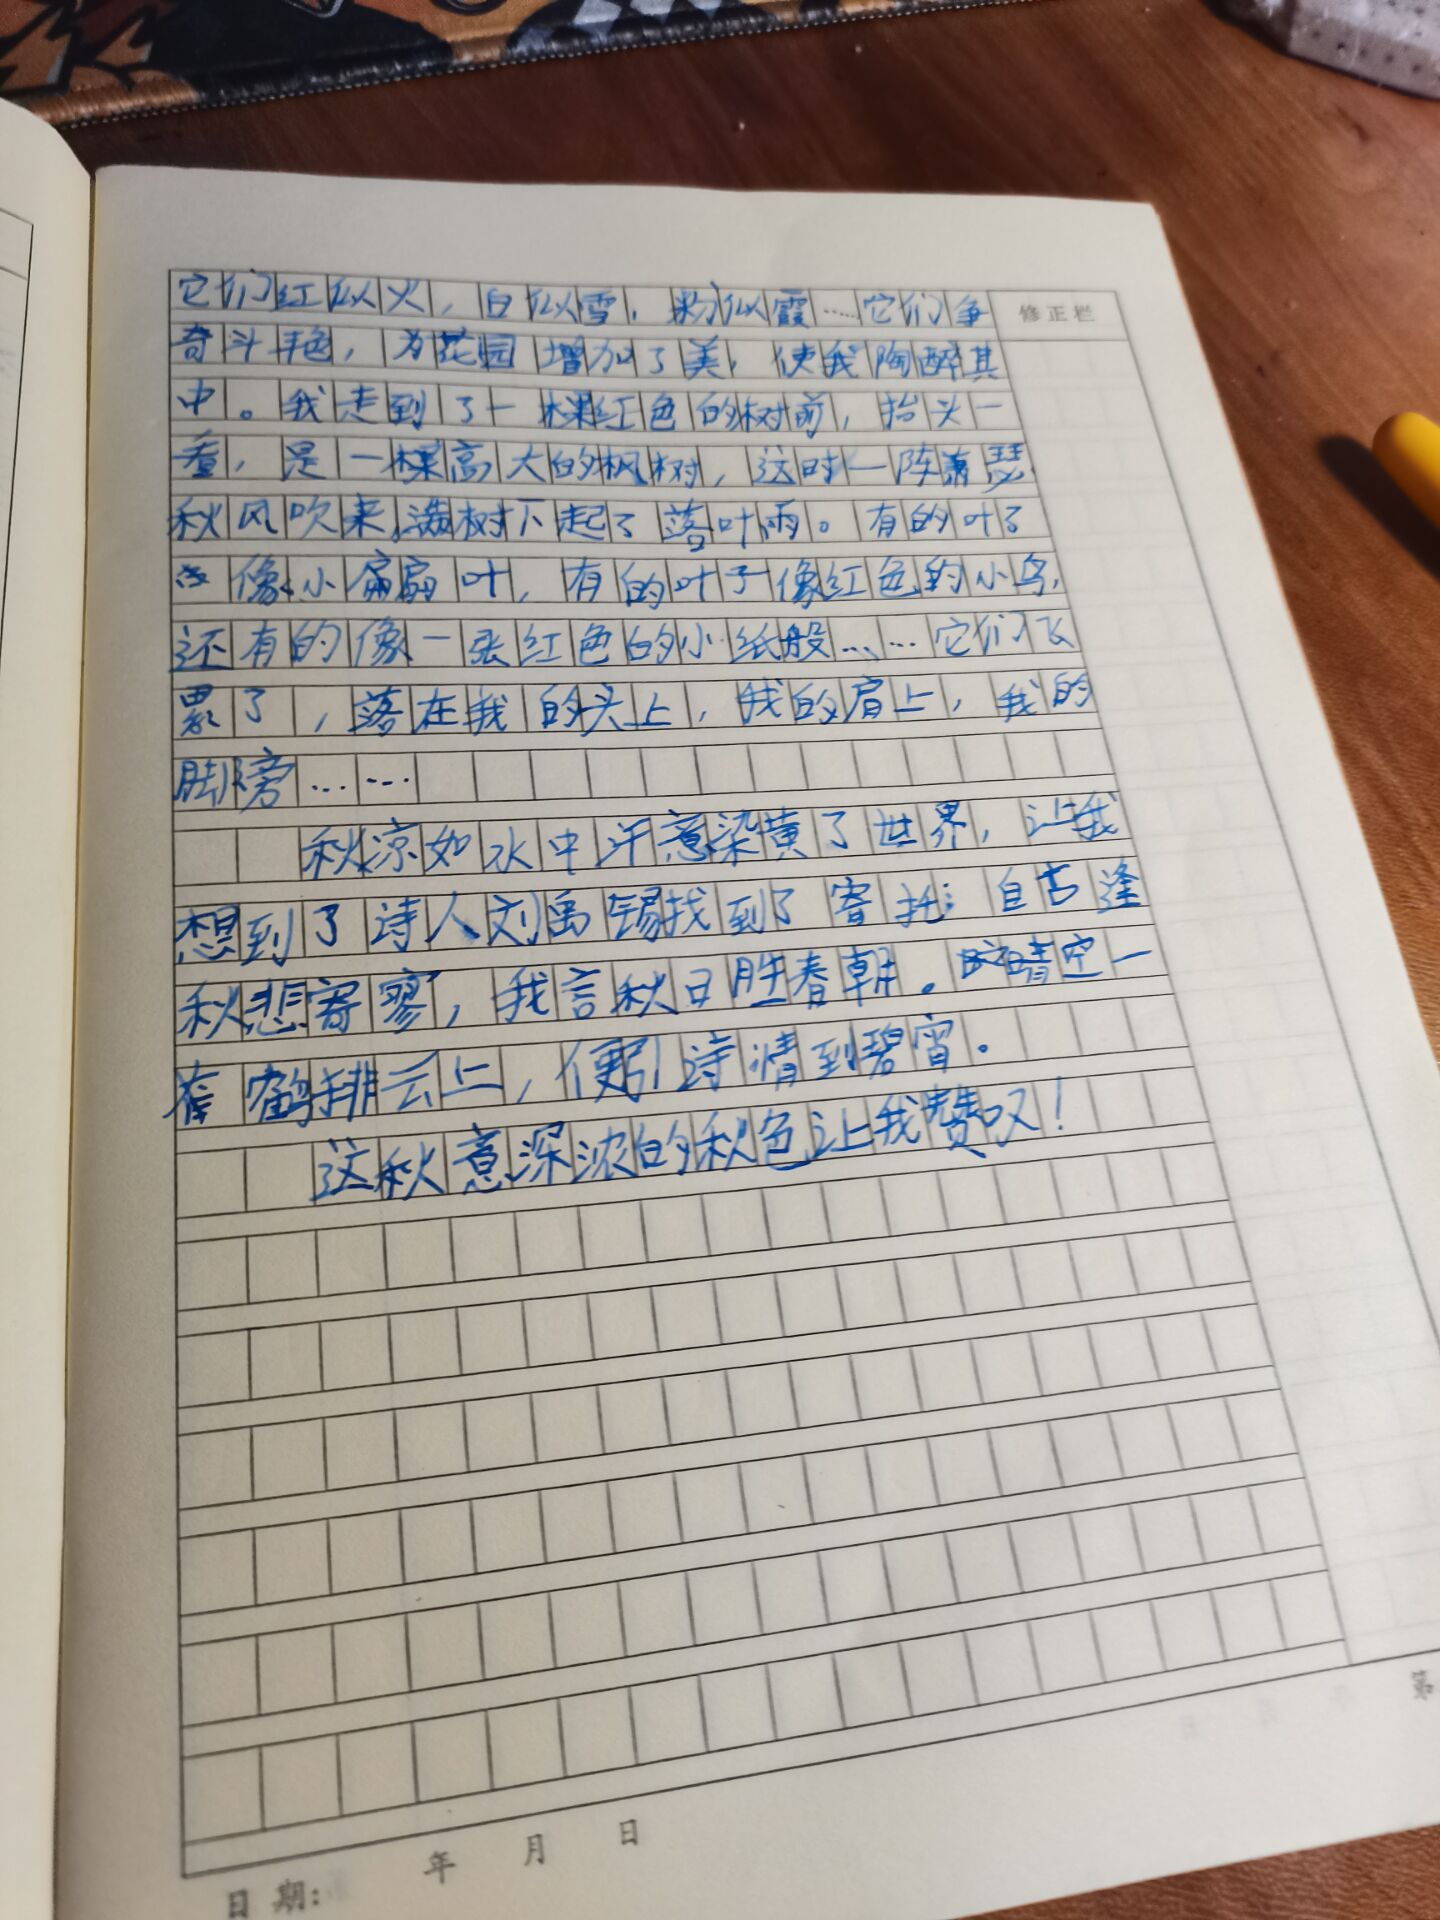 它们红似火，白似雪，粉似霞……它们争
修正栏
奇斗艳，为花园增加了美，使我陶醉其
中。我走到了一棵红色的树前，抬头一
看，是一棵高大的枫树，这时一阵萧瑟
秋风吹来，满树下起了落叶雨。有的叶子
像小扁扇叶，有的叶子像红色的小鸟，
还有的像一张红色的小纸般……它们飞
累了，落在我的头上，我的肩上，我的
脚旁……
秋凉如水中汗意染黄了世界，让我
想到了诗人刘禹锡找到了寄托：自古逢
秋悲寄寥，我言秋日胜春朝。晴空一
鹤排云上，便引诗情到碧宵。
这秋意深浓的秋色让我赞叹！
第
日期：  年  月  日